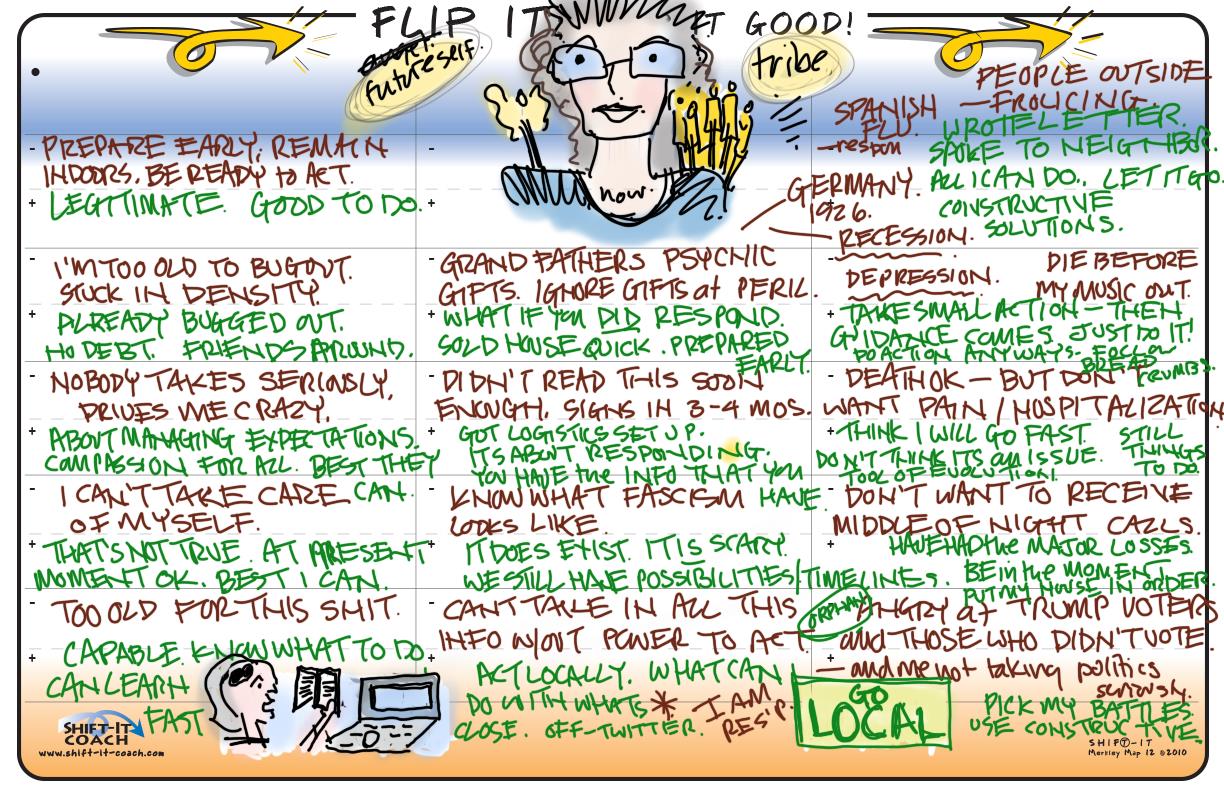 FLIP IT
IT GOOD!
future self.
tribe
now.
- PREPARE EARLY; REMAIN
INDOORS. BE READY to ACT.
+ LEGITIMATE. GOOD TO DO.
- I'M TOO OLD TO BUGOUT.
STUCK IN DENSITY.
+ ALREADY BUGGED OUT.
NO DEBT. FRIENDS AROUND.
- NOBODY TAKES SERIOUSLY,
DRIVES ME CRAZY.
+ ABOUT MANAGING EXPECTATIONS.
COMPASSION FOR ALL. BEST THEY
CAN.
- I CAN'T TAKE CARE
OF MYSELF.
+ THAT'S NOT TRUE. AT PRESENT
MOMENT OK. BEST I CAN.
- TOO OLD FOR THIS SHIT.
+ CAPABLE. KNOW WHAT TO DO.
CAN LEARN
FAST
SHIFT-IT
COACH
www.shift-it-coach.com
-
+
- GRAND FATHERS PSYCHIC
GIFTS. IGNORE GIFTS at PERIL.
+ WHAT IF YOU DID RESPOND.
SOLD HOUSE QUICK. PREPARED
EARLY.
- DIDN'T READ THIS SOON
ENOUGH. SIGNS IN 3-4 MOS.
+ GOT LOGISTICS SET UP.
ITS ABOUT RESPONDING.
YOU HAVE the INFO THAT YOU
HAVE
- KNOW WHAT FASCISM
LOOKS LIKE.
+ IT DOES EXIST. IT IS SCARY.
WE STILL HAVE POSSIBILITIES/TIMELINES.
- CAN'T TAKE IN ALL THIS
INFO W/OUT POWER TO ACT.
+ ACT LOCALLY. WHAT CAN I
DO WITH WHATS
CLOSE. OFF-TWITTER.
* I AM
RES'P.
PEOPLE OUTSIDE
— FROLICING.
SPANISH
FLU.
- respon
WROTE LETTER.
SPOKE TO NEIGHBOR.
ALL I CAN DO.. LET IT GO.
CONSTRUCTIVE
SOLUTIONS.
GERMANY.
1926.
- RECESSION.
DEPRESSION.
DIE BEFORE
MY MUSIC OUT.
+ TAKE SMALL ACTION — THEN
GUIDANCE COMES. JUST DO IT!
DO ACTION ANYWAYS- FOLLOW
BREAD CRUMBS.
- DEATH OK — BUT DON'T
WANT PAIN / HOSPITALIZATION
+ THINK I WILL GO FAST.
DON'T THINK ITS an ISSUE.
TOOL OF EVOLUTION!
STILL
THINGS
TO DO.
- DON'T WANT TO RECEIVE
MIDDLE OF NIGHT CALLS.
+ HAVE HAD the MAJOR LOSSES.
BE in the MOMENT
PUT MY HOUSE IN ORDER.
ORPHAN
- ANGRY at TRUMP VOTERS
and THOSE WHO DIDN'T VOTE.
— and me not taking politics
seriously.
+ GO
LOCAL
PICK MY BATTLES
USE CONSTRUCTIVE.
SHIFT-IT
Merkley Map 12 ©2010